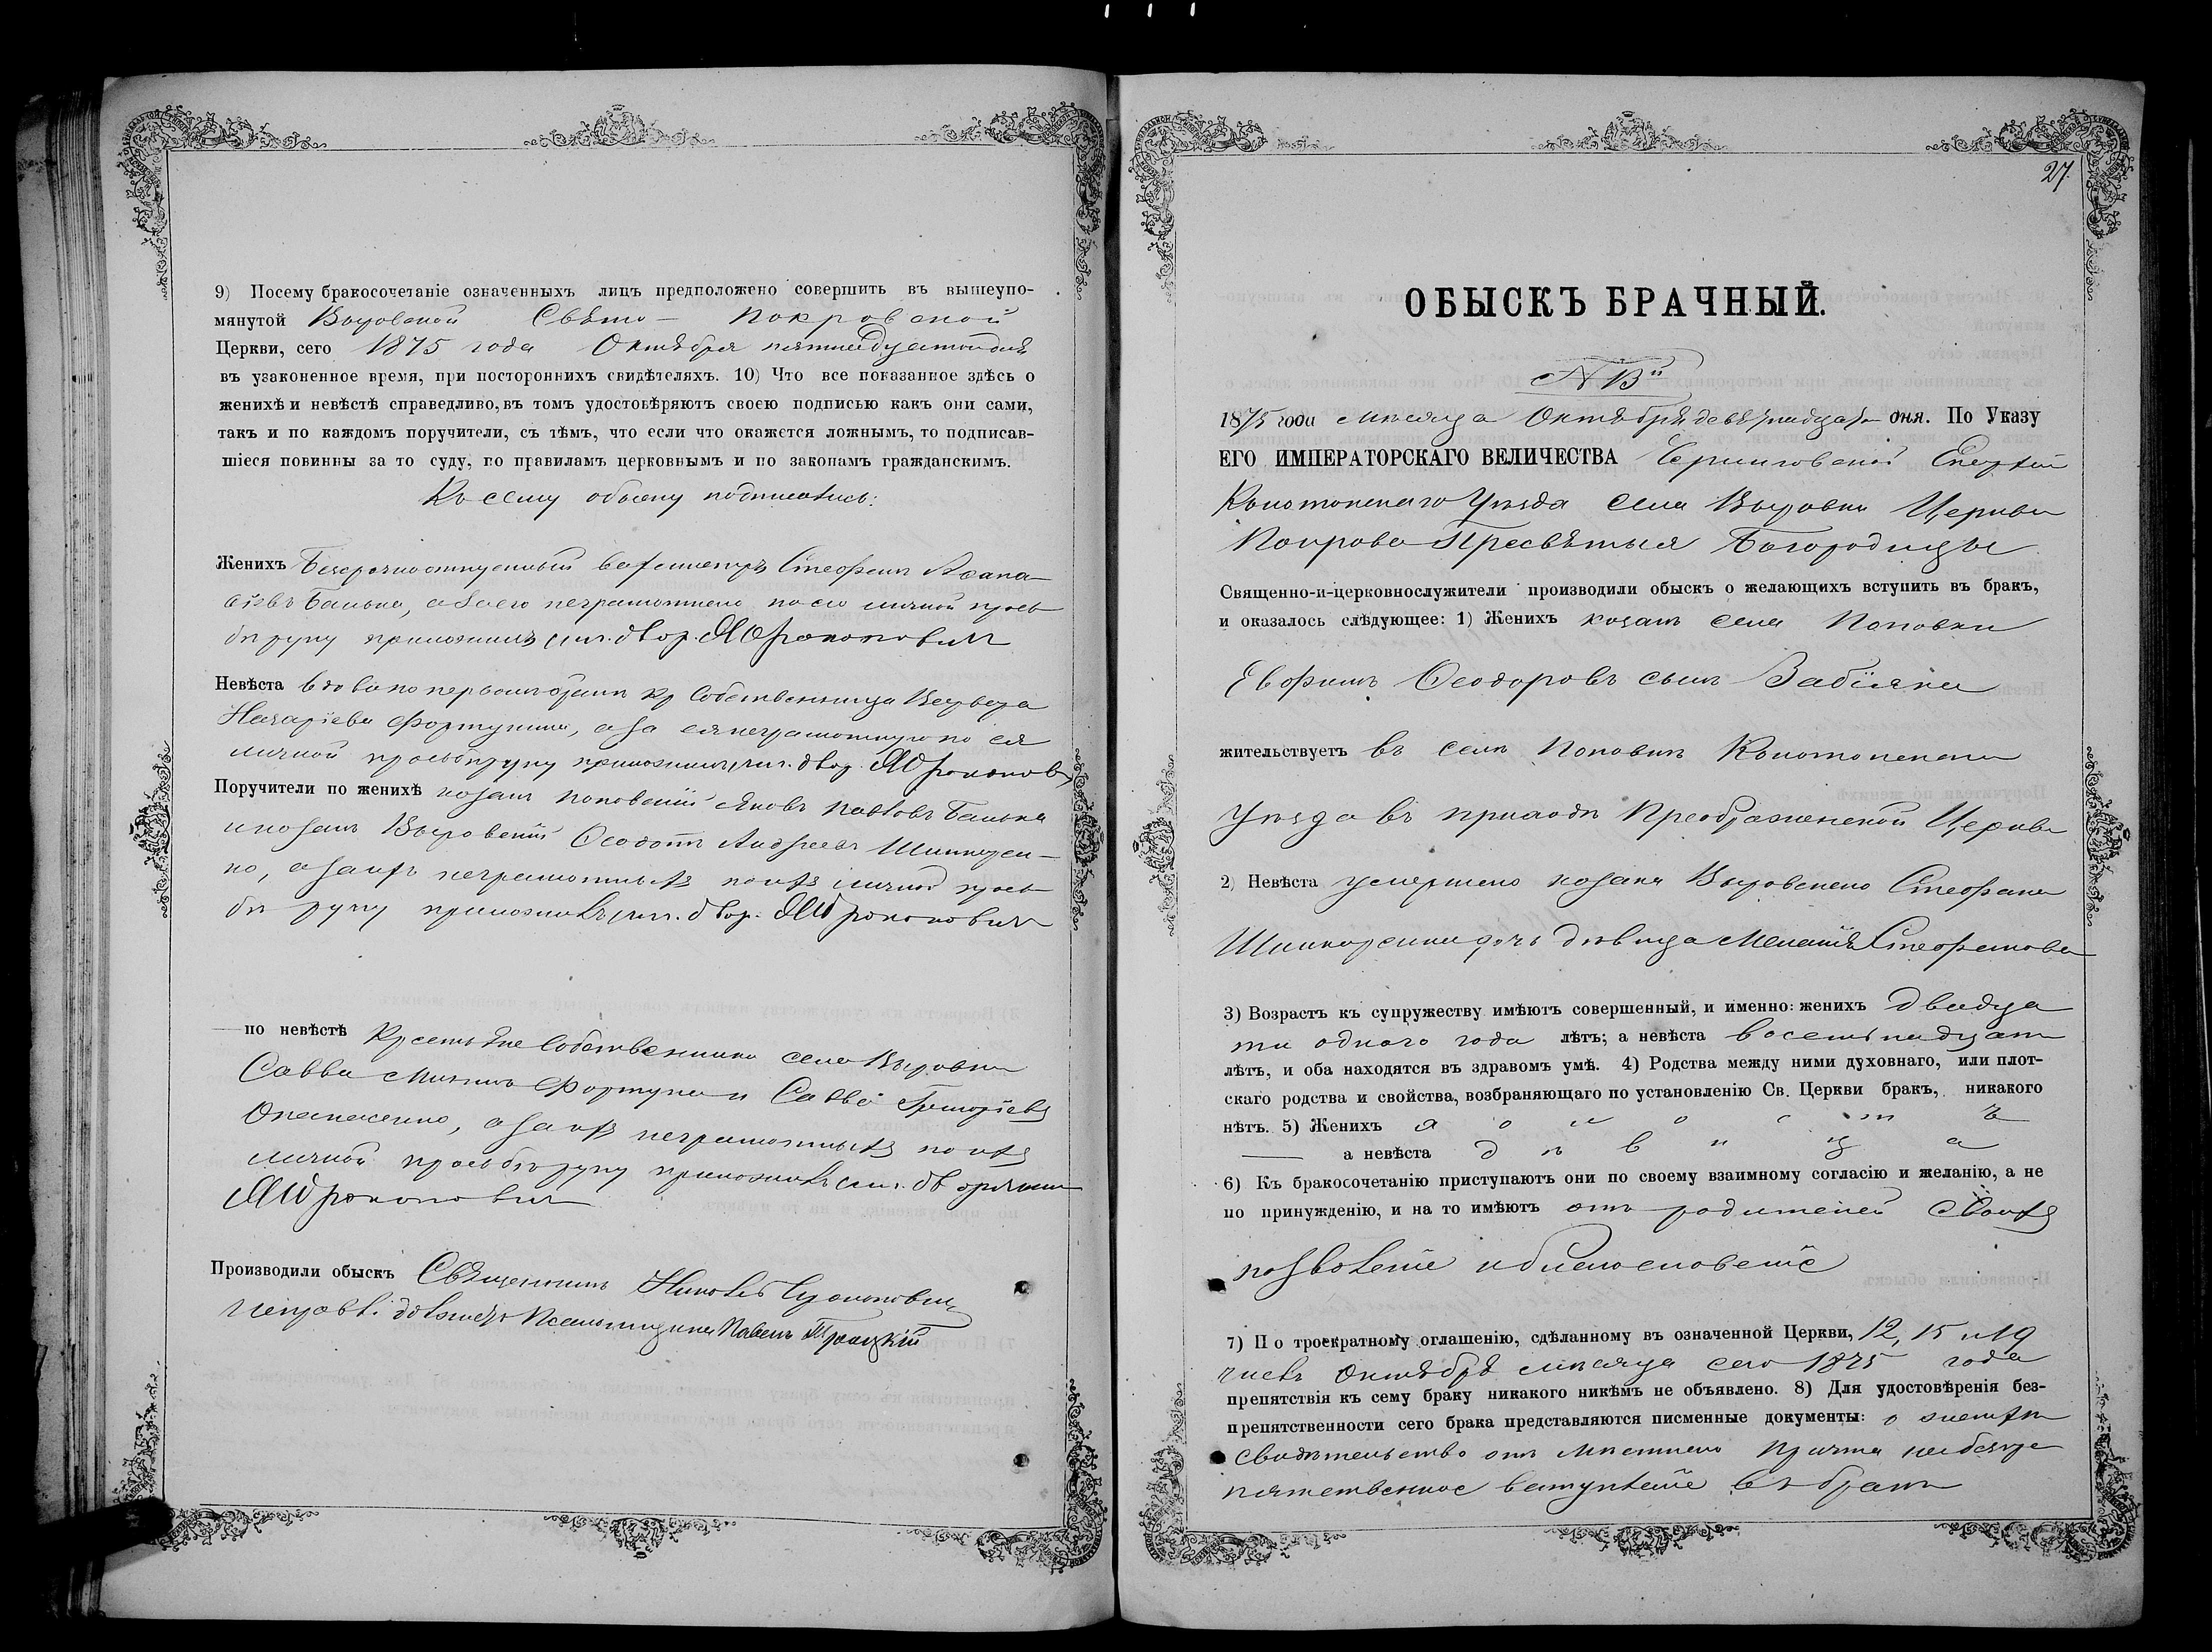 9) Посему бракосочетаніе означенныхъ лицъ предположено совершить въ вышеупо-
мянутой Выровской Свято- Покровской
Церкви, сего 1875 года Октября пятнадцатого дня
въ узаконенное время, при постороннихъ свидѣтеляхъ. 10) Что все показанное здѣсь о
женихѣ и невѣстѣ справедливо, въ томъ удостовѣряютъ своею подписью какъ они сами,
такъ и по каждомъ поручители, съ тѣмъ, что если что окажется ложнымъ, то подписав-
шіеся повинны за то суду, по правиламъ церковнымъ и по законамъ гражданскимъ.
Къ сему обыску подписались:
Женихъ Безсрочноотпускный Стефанъ Афана-
сіевъ Банька, а за его неграмотнаго по его личной прось-
бѣ руку приложилъ двор. Прокоповичъ
Невѣста вдова по первомъ бракѣ кр. собственница Варвара
Назаріева Фортунина, а за ея неграмотную по ея
личной просьбѣ руку приложилъ двор. Прокопович
Поручители по женихѣ козакъ Поповскій Яковъ Павловъ Банька
и козакъ Выровскій Ѳеодотъ Андреевъ Шинкарен-
ко, а за ихъ неграмотныхъ по ихъ личной прось-
бѣ руку приложилъ двор. Прокоповичъ
по невѣстѣ Крестьяне собственники села Выровки
Савва Фортуна и Савва Григоріевъ
а за ихъ неграмотныхъ по ихъ
личной просьбѣ руку приложилъ дворянинъ
Прокоповичъ
Производили обыскъ Священникъ
должн. Псаломщика Павелъ Троицкій
27.
ОБЫСКЪ БРАЧНЫЙ.
1875 года мѣсяца Октября девятнадцат дня. По Указу
ЕГО ИМПЕРАТОРСКАГО ВЕЛИЧЕСТВА Черниговской Епархіи
Конотопскаго Уѣзда села Выровки Церкви
Покрова Пресвятыя Богородицы
Священно-и-церковнослужители производили обыскъ о желающихъ вступить въ бракъ,
и оказалось слѣдующее: 1) Женихъ козакъ села Поповки
Евфимъ Ѳеодоровъ сынъ Забіяка
жительствуетъ въ селѣ Поповкѣ Конотопскаго
Уѣзда въ приходѣ Преображенской Церкви
2) Невѣста умершаго козака Выровскаго Стефана
Шинкаренка дочь дѣвица Меланія Стефанова
3) Возрастъ къ супружеству имѣютъ совершенный, и именно: женихъ двадца
ти одного года лѣтъ; а невѣста восемнадцати
лѣтъ, и оба находятся въ здравомъ умѣ. 4) Родства между ними духовнаго, или плот-
скаго родства и свойства, возбраняющаго по установленію Св. Церкви бракъ, никакого
нѣтъ. 5) Женихъ холостъ
а невѣста дѣвица
6) Къ бракосочетанію приступаютъ они по своему взаимному согласію и желанію, а не
по принужденію, и на то имѣютъ отъ родителей своихъ
позволеніе и благословеніе
7) По троекратному оглашенію, сдѣланному въ означенной Церкви, 12, 15 и 19
числъ Октября мѣсяца сего 1875 года
препятствія къ сему браку никакого никѣмъ не объявлено. 8) Для удостовѣренія без-
препятственности сего брака представляются писменные документы: о женихѣ
свидѣтельство отъ мѣстнаго Причта на безпре
пятственное вступленіе въ бракъ